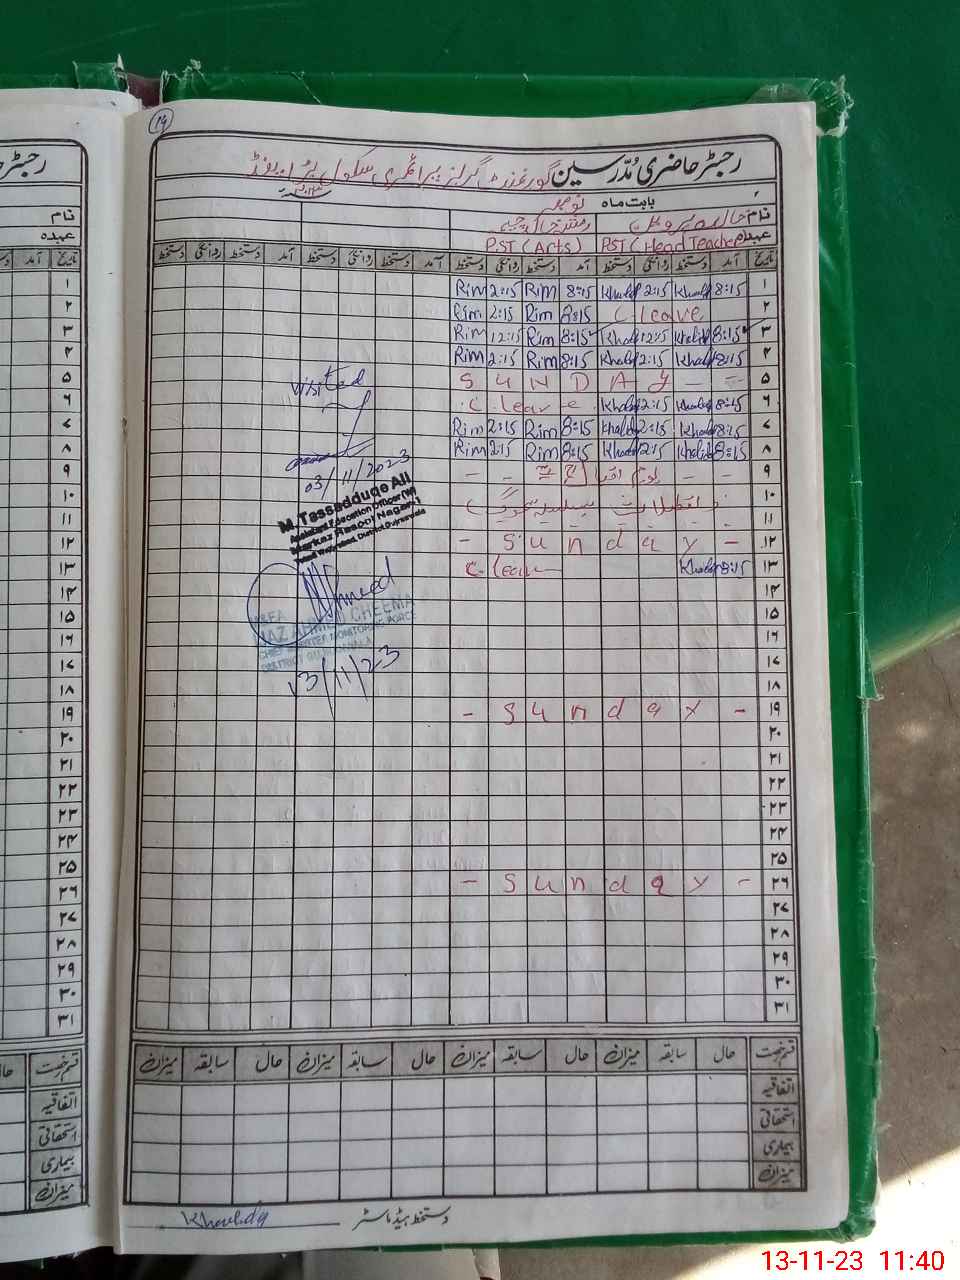 19
رجسٹر حاضری مُدرسین گورنمنٹ گرلز پرائمری سکول
بابت ماہ نومبر
نام
عہدہ PST (Head Teacher) PST (Arts)
تاریخ آمد دستخط روانگی دستخط آمد دستخط روانگی دستخط آمد دستخط روانگی دستخط آمد دستخط روانگی دستخط
۱ 8:15 Khalid 2:15 Khalid 8:15 Rim 2:15 Rim
۲ C. Leave 8:15 Rim 2:15 Rim
۳ 8:15 Khalid 12:15 Khalid 8:15 Rim 12:15 Rim
۴ 8:15 Khalid 2:15 Khalid 8:15 Rim 2:15 Rim
۵ SUNDAY
۶ 8:15 Khalid 2:15 Khalid C. leave
۷ 8:15 Khalid 2:15 Khalid 8:15 Rim 2:15 Rim
۸ 8:15 Khalid 2:15 Khalid 8:15 Rim 2:15 Rim
۹ - - یوم اقبال - -
۱۰ تعطیلات بسلسلہ سموگ
۱۱
۱۲ - Sunday -
۱۳ 8:15 Khalid C. leave
۱۴
۱۵
۱۶
۱۷
۱۸
۱۹ - Sunday -
۲۰
۲۱
۲۲
۲۳
۲۴
۲۵
۲۶ - Sunday -
۲۷
۲۸
۲۹
۳۰
۳۱
visited
03/11/2023
M. Tassadduqe Ali
Assistant Education Officer (W)
Markaz Rasool Nagar-1
Ahmed
CHEEMA
CHIEF MINISTER MONITORING FORCE
DISTRICT GUJRANWALA
13/11/23
قسم رخصت حال سابقہ میزان حال سابقہ میزان حال سابقہ میزان حال سابقہ میزان
اتفاقیہ
استحقاقی
بیماری
میزان
دستخط ہیڈ ماسٹر
رجسٹر
نام
عہدہ
تاریخ آمد
۱
۲
۳
۴
۵
۶
۷
۸
۹
۱۰
۱۱
۱۲
۱۳
۱۴
۱۵
۱۶
۱۷
۱۸
۱۹
۲۰
۲۱
۲۲
۲۳
۲۴
۲۵
۲۶
۲۷
۲۸
۲۹
۳۰
۳۱
قسم رخصت
اتفاقیہ
استحقاقی
بیماری
میزان
13-11-23 11:40